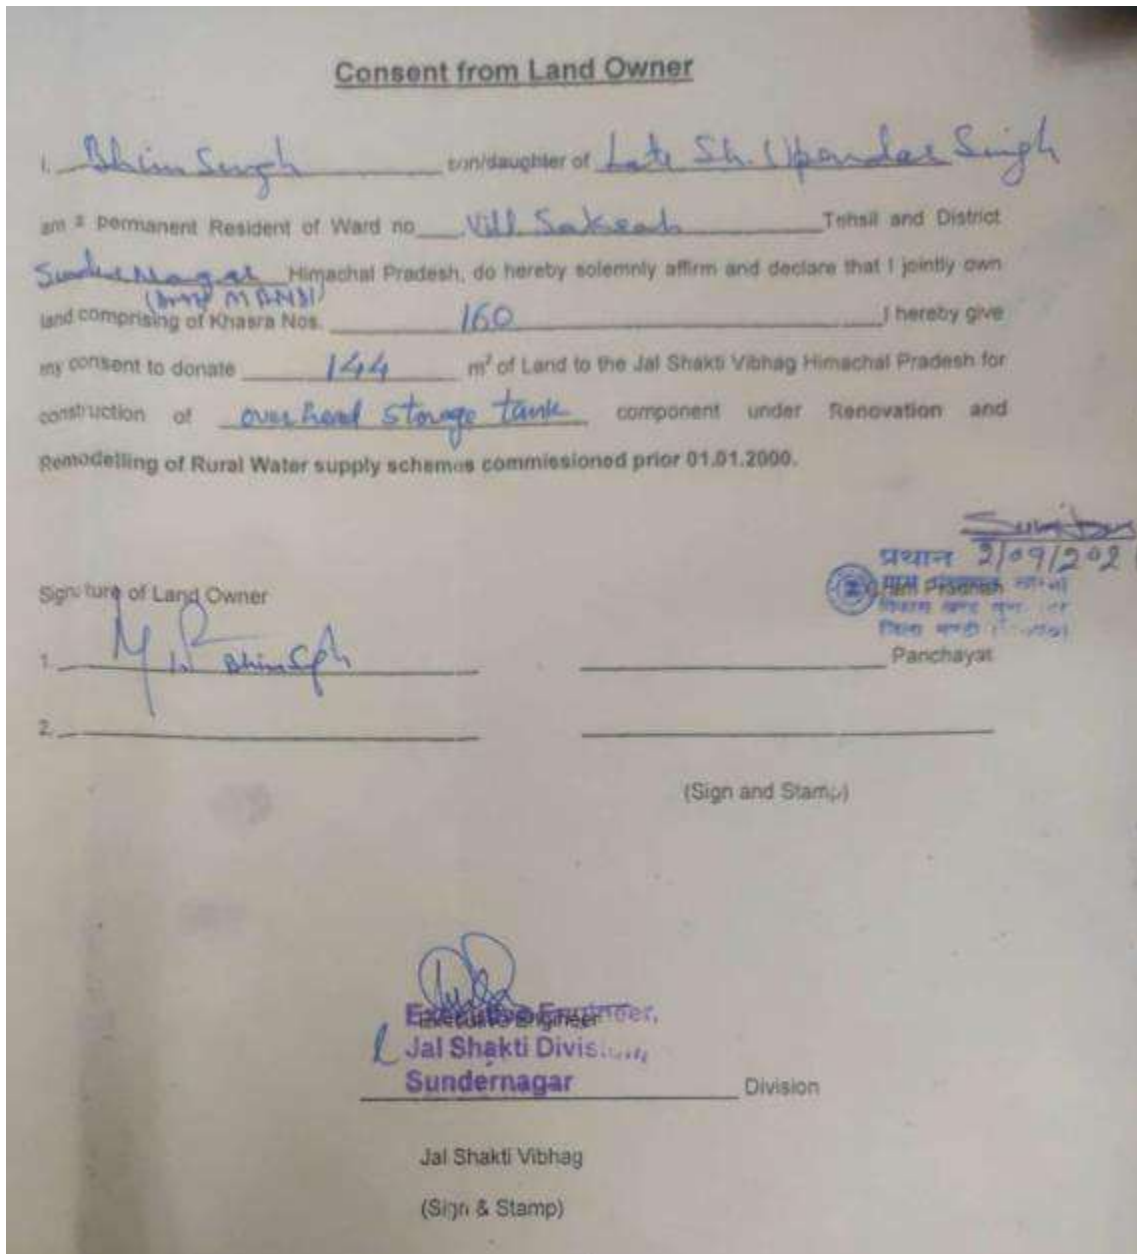 Consent from Land Owner
I, Bhim Singh son/daughter of Late Sh. Upender Singh
am a permanent Resident of Ward no Vill Tehsil and District
Sunder Nagar Himachal Pradesh, do hereby solemnly affirm and declare that I jointly own
MANDI)
land comprising of Khasra Nos. 160 I hereby give
my consent to donate 144 m² of Land to the Jal Shakti Vibhag Himachal Pradesh for
construction of over head storage tank component under Renovation and
Remodelling of Rural Water supply schemes commissioned prior 01.01.2000.
प्रधान
Signature of Land Owner
Pradhan
1. Bhim Sgh Panchayat
2.
(Sign and Stamp)
Executive Engineer,
Executive Engineer
Jal Shakti Division,
Sundernagar
Division
Jal Shakti Vibhag
(Sign & Stamp)